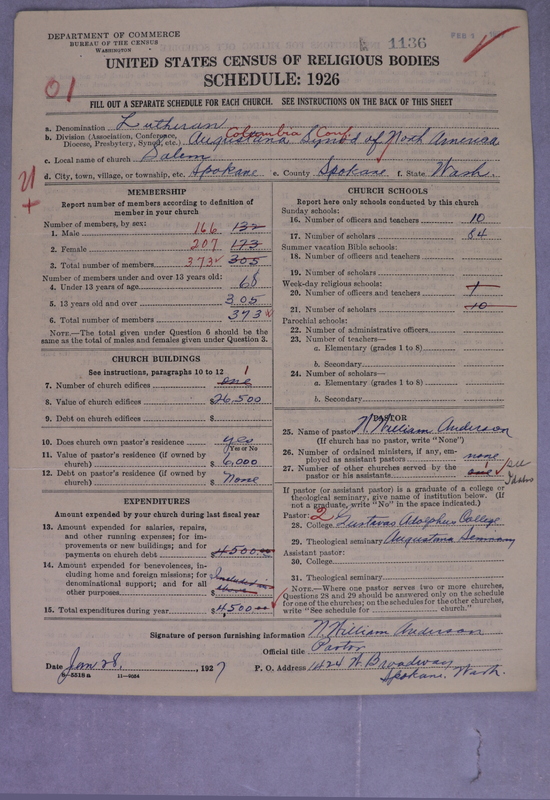 DEPARTMENT OF COMMERCE
BUREAU OF THE CENSUS
WASHINGTON
1136
FEB 1
UNITED STATES CENSUS OF RELIGIOUS BODIES
SCHEDULE: 1926
01
FILL OUT A SEPARATE SCHEDULE FOR EACH CHURCH. SEE INSTRUCTIONS ON THE BACK OF THIS SHEET
a. Denomination Lutheran
Columbia Conf.
b. Division (Association, Conference, Diocese, Presbytery, Synod, etc.) Augustana Synod of North America
c. Local name of church Salem
d. City, town, village, or township, etc. Spokane e. County Spokane f. State Wash.
MEMBERSHIP
Report number of members according to definition of
member in your church
Number of members, by sex:
1. Male 166 132
2. Female 207 173
3. Total number of members 373 305
Number of members under and over 13 years old:
4. Under 13 years of age 68
5. 13 years old and over 305
6. Total number of members 373
NOTE.—The total given under Question 6 should be the
same as the total of males and females given under Question 3.
CHURCH BUILDINGS
See instructions, paragraphs 10 to 12
7. Number of church edifices one 1
8. Value of church edifices $26,500
9. Debt on church edifices $
10. Does church own pastor's residence yes
Yes or No
11. Value of pastor's residence (if owned by
church) $6,000
12. Debt on pastor's residence (if owned by
church) $None
EXPENDITURES
Amount expended by your church during last fiscal year
13. Amount expended for salaries, repairs,
and other running expenses; for im-
provements or new building; and for
payments on church debt 4500.00
14. Amount expended for benevolences, in-
cluding home and foreign missions; for
denominational support; and for all
other purposes $Included in above
15. Total expenditures during year $4,500.00
CHURCH SCHOOLS
Report here only schools conducted by this church
Sunday schools:
16. Number of officers and teachers 10
17. Number of scholars 84
Summer vacation Bible schools:
18. Number of officers and teachers
19. Number of scholars
Week-day religious schools:
20. Number of officers and teachers 1
21. Number of scholars 10
Parochial schools:
22. Number of administrative officers
23. Number of teachers—
a. Elementary (grades 1 to 8)
b. Secondary
24. Number of scholars—
a. Elementary (grades 1 to 8)
b. Secondary
PASTOR
25. Name of pastor N. William Anderson
(If church has no pastor, write "None")
26. Number of ordained ministers, if any, em-
ployed as assistant pastors none
27. Number of other churches served by the
pastor or his assistants one 1 see
If pastor (or assistant pastor) is a graduate of a college or
theological seminary, give name of institution below. (If
not a graduate, write "No" in the space indicated.)
Pastor: 2
28. College Gustavus Adolphus College
29. Theological seminary Augustana Seminary
Assistant pastor:
30. College
31. Theological seminary
NOTE.—Where one pastor serves two or more churches,
Questions 28 and 29 should be answered only on the schedule
for one of the churches; on the schedules for the other churches,
write "See schedule for church."
Signature of person furnishing information N. William Anderson
Official title Pastor
Date Jan 28, 1927 P. O. Address 1424 W. Broadway
Spokane, Wash.
8-5318 a 11-9054